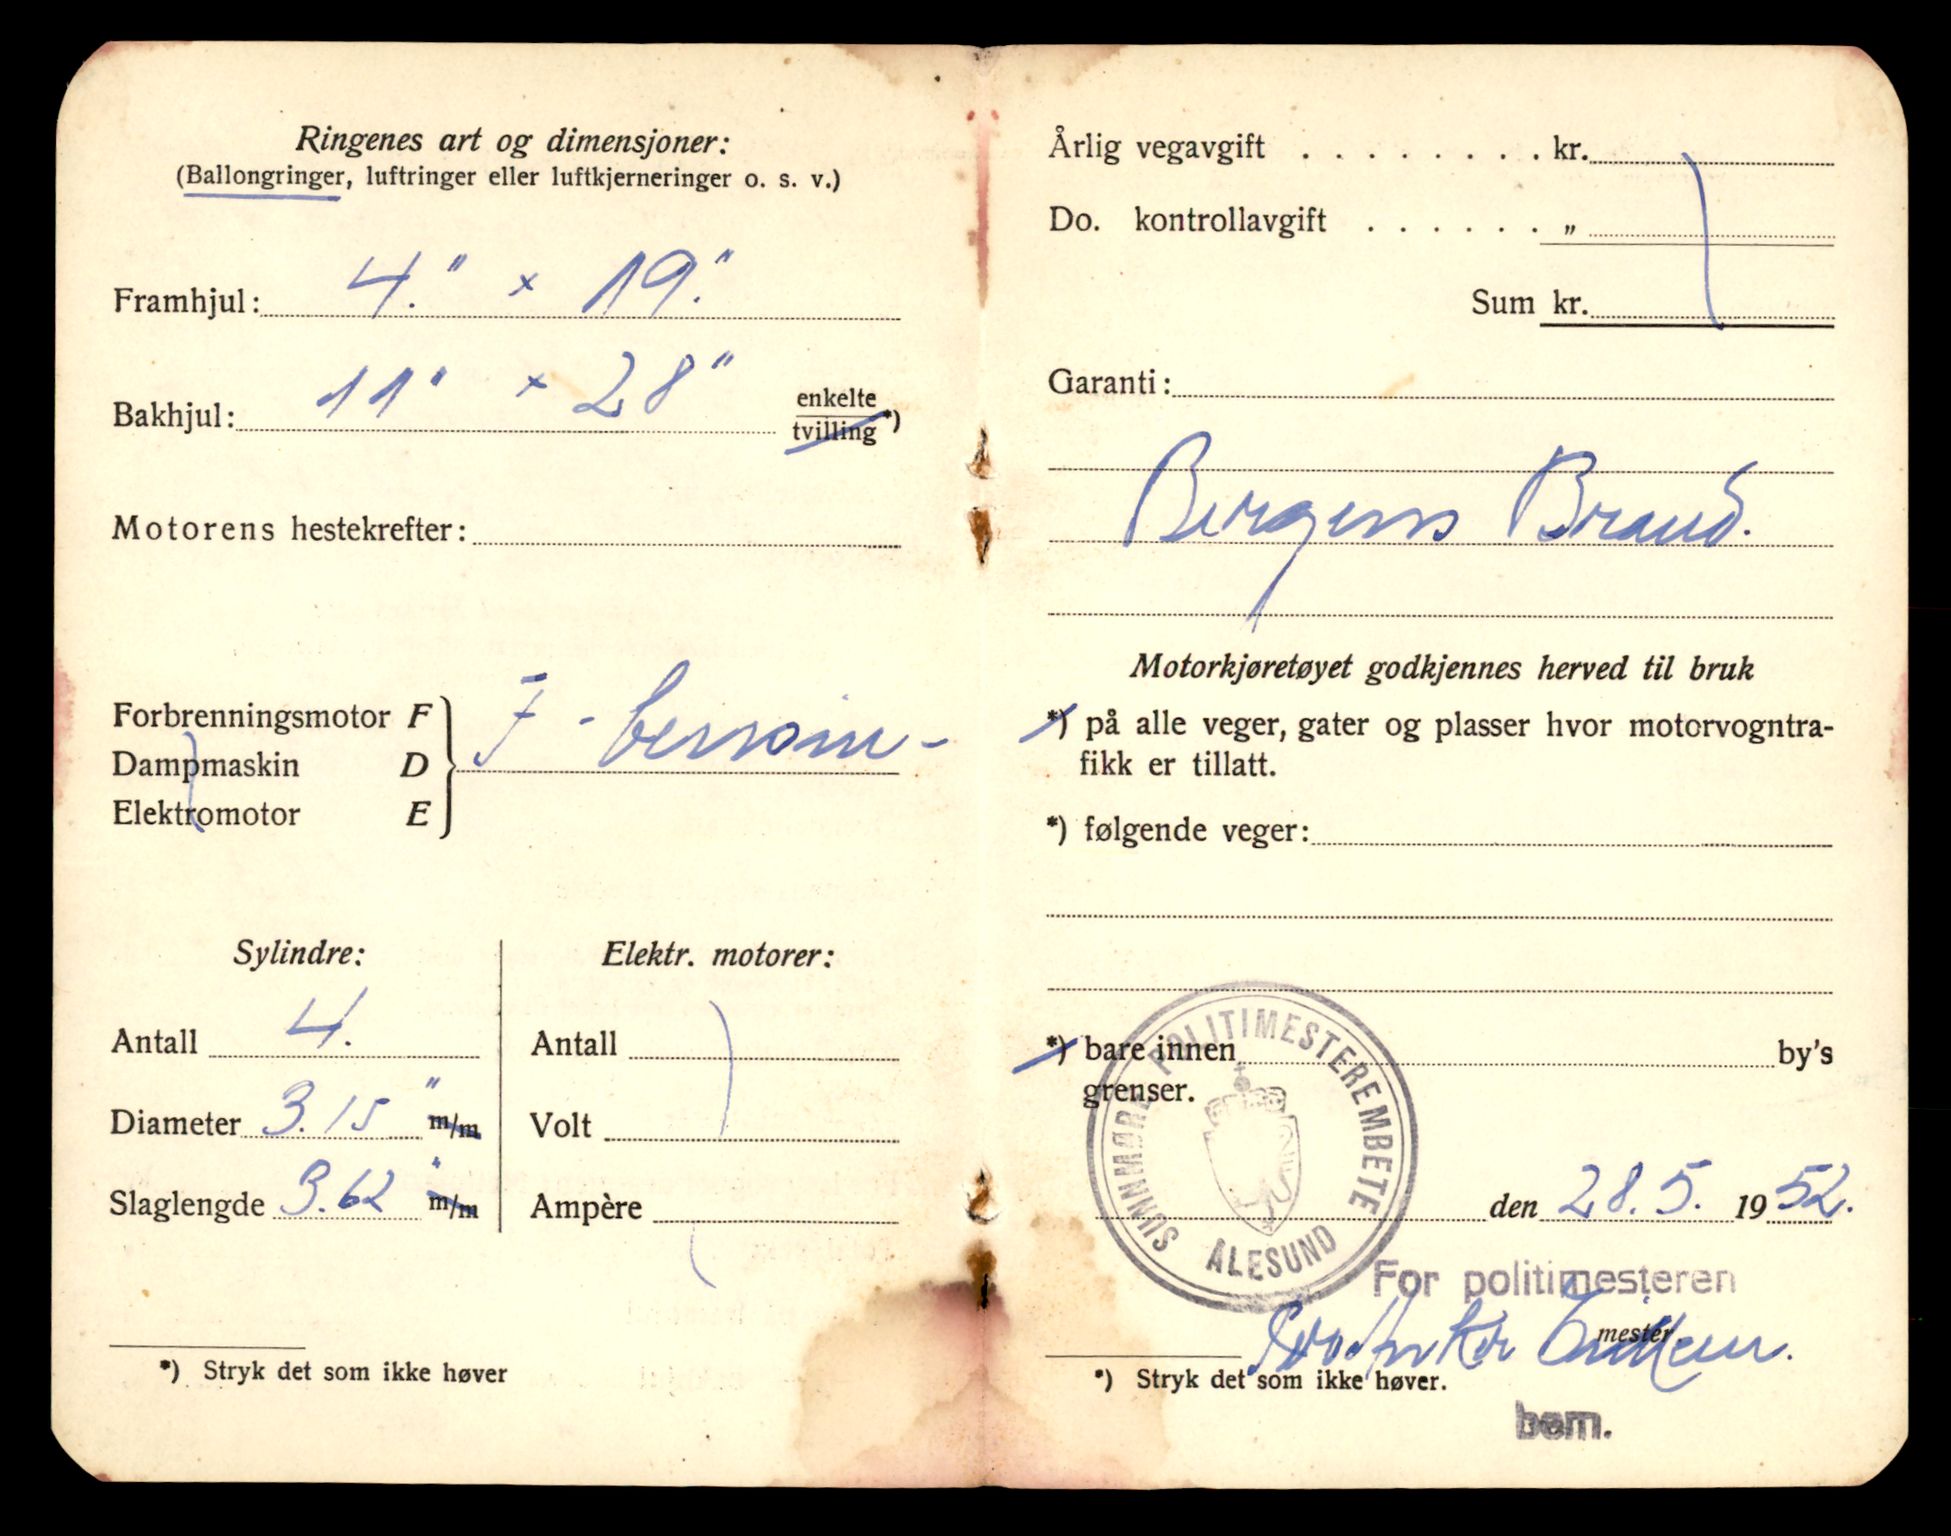 Ringenes art og dimensjoner:
(Ballongringer, luftringer eller luftkjerneringer o. s. v.)
Framhjul: 4." × 19."
Bakhjul: 11" × 28" enkelte
tvilling *)
Motorens hestekrefter:
Forbrenningsmotor F
Dampmaskin D F - bensin -
Elektromotor E
Sylindre:
Antall 4.
Diameter 3.15 " m/m
Slaglengde 3.62 " m/m
Elektr. motorer:
Antall
Volt
Ampère
*) Stryk det som ikke høver
Årlig vegavgift . . . . . . . . kr.
Do. kontrollavgift . . . . . . „
Sum kr.
Garanti:
Bergens Brand.
Motorkjøretøyet godkjennes herved til bruk
*) på alle veger, gater og plasser hvor motorvogntra-
fikk er tillatt.
*) følgende veger:
*) bare innen by's
grenser.
SUNNMØRE POLITIMESTEREMBETE
ÅLESUND
den 28.5. 1952.
For politimesteren
mester.
*) Stryk det som ikke høver.
bem.